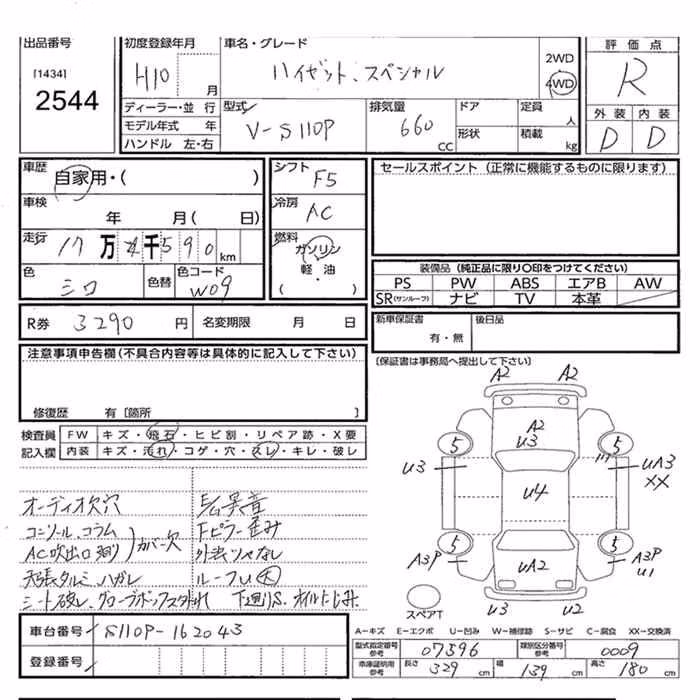 出品番号
[1434]
2544
初度登録年月
H10 月
車名・グレード
ハイゼット、スペシャル
2WD
4WD
評価点
R
ディーラー・並行
モデル年式 年
ハンドル 左・右
型式
V-S110P
排気量
660 CC
ドア
形状
定員 人
積載 kg
外装 内装
D D
車歴
自家用・( )
車検
年 月( 日)
走行
17万4千590km
色
シロ
色替
色コード
W09
シフト
F5
冷房
AC
燃料
ガソリン
軽・油
( )
セールスポイント (正常に機能するものに限ります)
装備品 (純正品に限り〇印をつけてください)
PS PW ABS エアB AW
SR(サンルーフ) ナビ TV 本革
R券 3290 円 名変期限 月 日
新車保証書
有・無
後日品
(保証書は事務局へ提出して下さい)
注意事項申告欄(不具合内容等は具体的に記入して下さい)
修復歴 有 [箇所 ]
検査員 FW キズ・飛石・ヒビ割・リペア跡・X要
記入欄 内装 キズ・汚れ・コゲ・穴・スレ・キレ・破レ
オーディオ欠穴
コンソール、コラム
AC吹出口廻り
ガバ欠
天張タルミ、ハガレ
異音
Fピラー歪み
外装ツヤなし
ルーフU大
A2 A2
A2
U3
5 5
U3
UA3
XX
U4
5 5
A3P
A3P
U1
UA2
U3 U2
スペアT
車台番号 S110P-162043
登録番号
A-キズ E-エクボ U-凹み W-補修跡 S-サビ C-腐食 XX-交換済
型式指定番号
参考
07396
類別区分番号
参考
0009
車庫証明用
参考
長さ 329 cm 幅 139 cm 高さ 180 cm